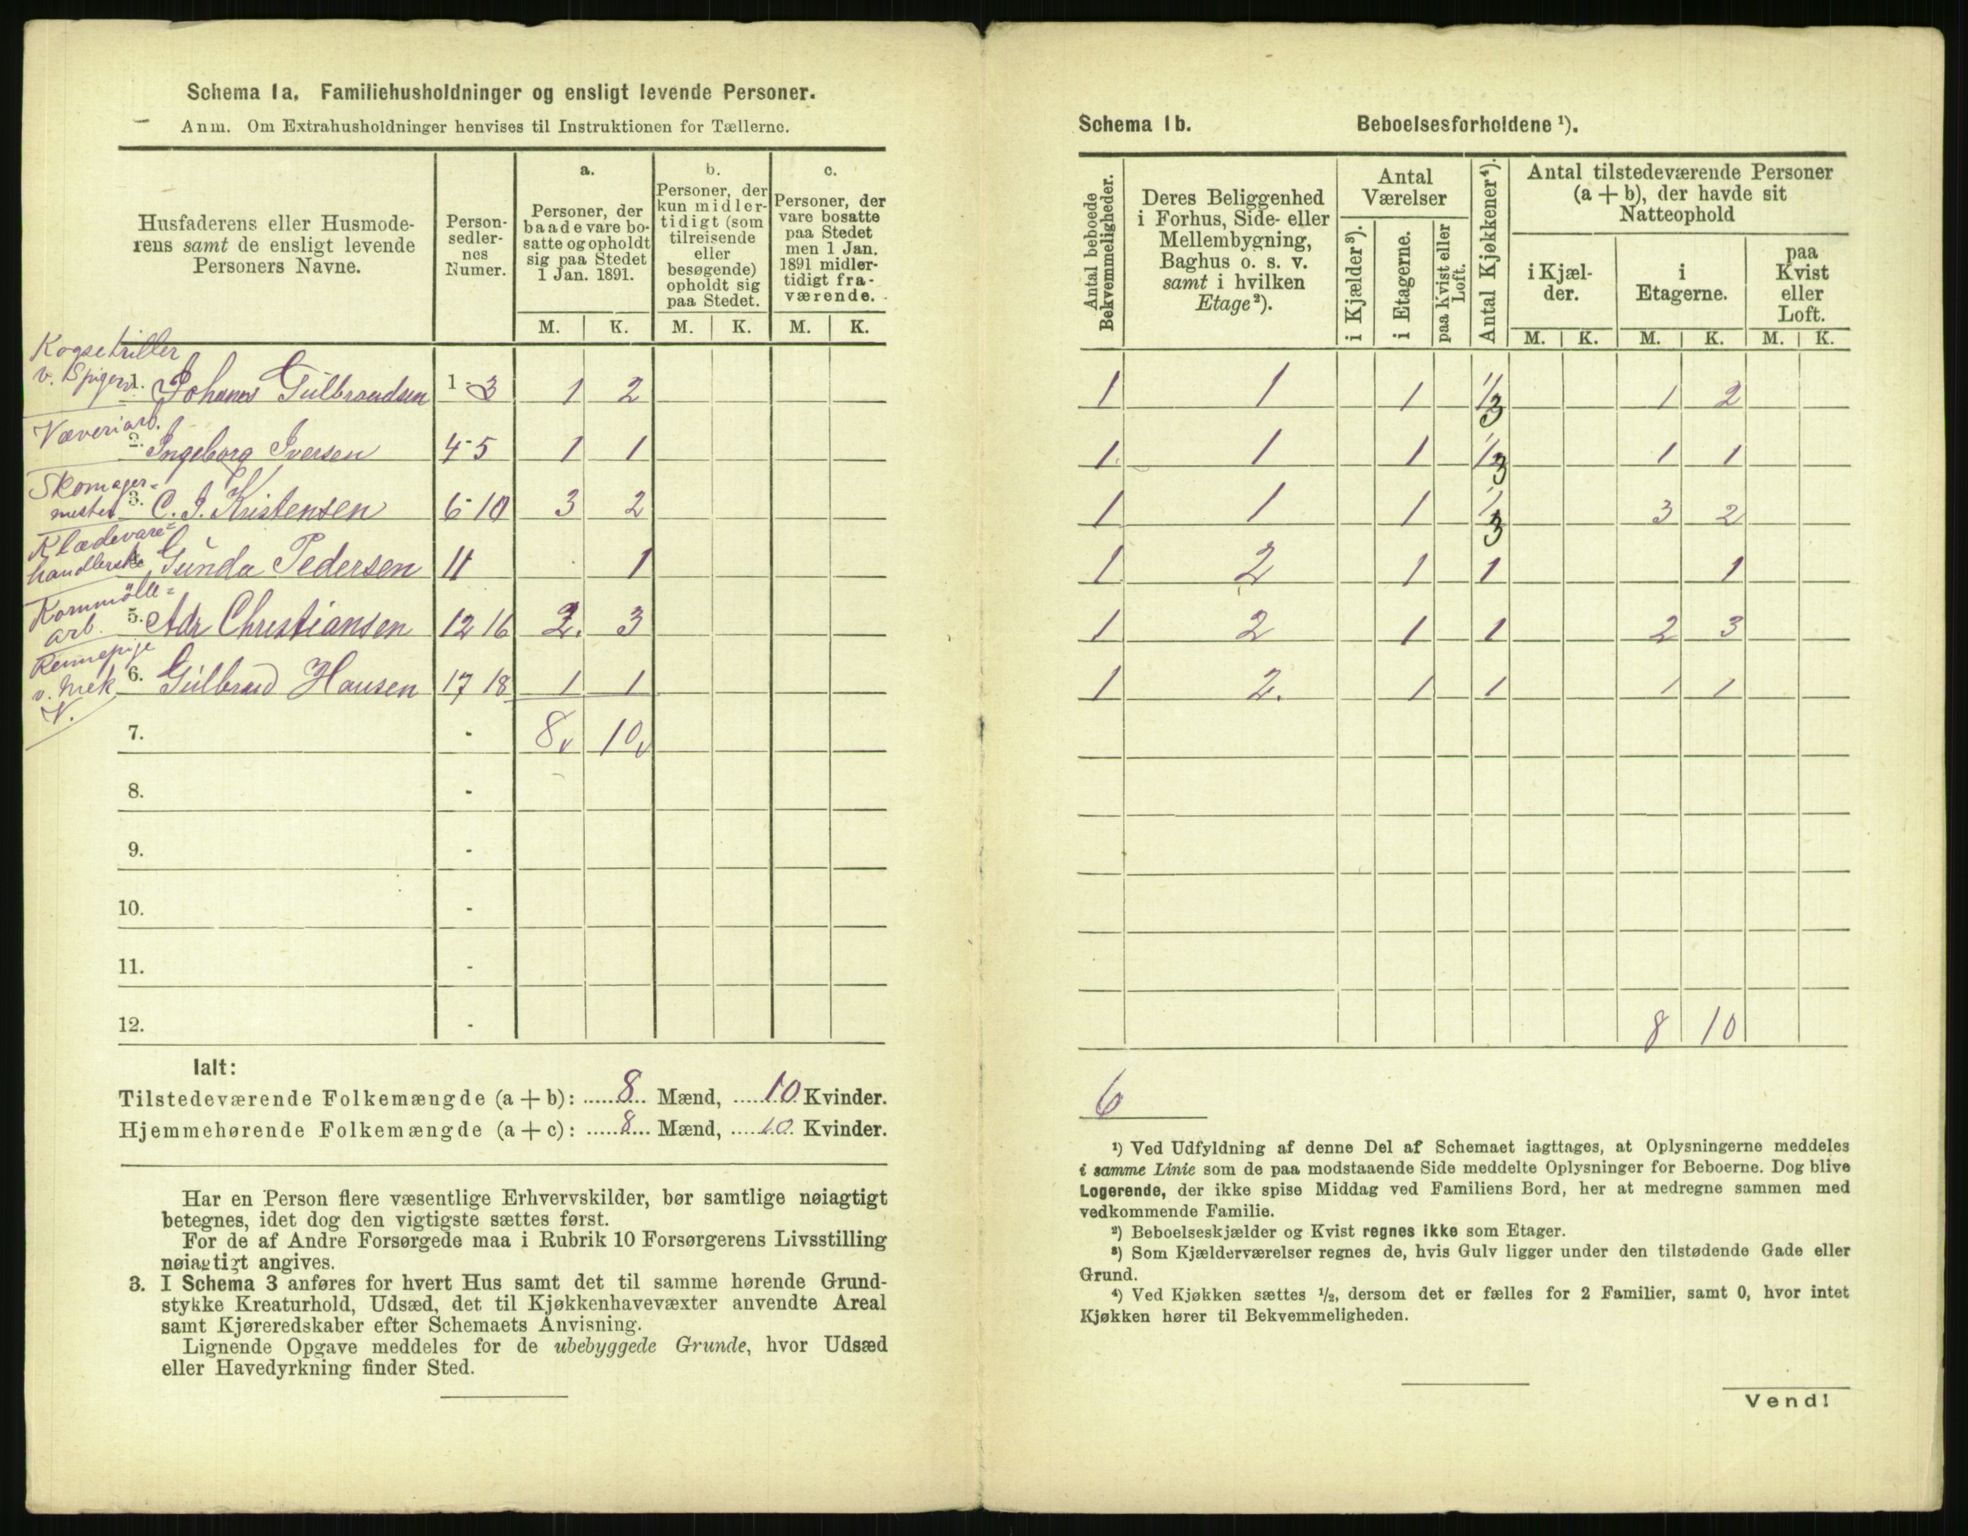 Schema 1a. Familiehusholdninger og ensligt levende Personer.
Anm. Om Extrahusholdninger henvises til Instruktionen for Tællerne.
Husfaderens eller Husmoderens samt de ensligt levende Personers Navne.
Personsedlernes Numer.
a. Personer, der baade vare bosatte og opholdt sig paa Stedet 1 Jan. 1891.
b. Personer, der kun midlertidigt (som tilreisende eller besøgende) opholdt sig paa Stedet.
c. Personer, der vare bosatte paa Stedet men 1 Jan. 1891 midlertidigt fraværende.
M. K. M. K. M. K.
v. Spiger 1. Johannes Gulbrandsen 1-3 1 2
Væveriarb.
2. Ingeborg Iversen 4-5 1 1
Skomager=
mester 3. C. J. Kristensen 6-10 3 2
Klædevare=
handlerske 4. Gunda Pedersen 11 1
Kornmölle=
arb. 5. Adr Christiansen 12 16 2. 3
v. Mek. 6. Gulbrand Hansen 17 18 1 1
V.
7. - 8 10
8. -
9. -
10. -
11. -
12. -
Ialt:
Tilstedeværende Folkemængde (a + b): 8 Mænd, 10 Kvinder.
Hjemmehørende Folkemængde (a + c): 8 Mænd, 10 Kvinder.
Har en Person flere væsentlige Erhvervskilder, bør samtlige nøiagtigt
betegnes, idet dog den vigtigste sættes først.
For de af Andre Forsørgede maa i Rubrik 10 Forsørgerens Livsstilling
nøiagtigt angives.
3. I Schema 3 anføres for hvert Hus samt det til samme hørende Grund-
stykke Kreaturhold, Udsæd, det til Kjøkkenhavevæxter anvendte Areal
samt Kjøreredskaber efter Schemaets Anvisning.
Lignende Opgave meddeles for de ubebyggede Grunde, hvor Udsæd
eller Havedyrkning finder Sted.
Schema 1b. Beboelsesforholdene ¹).
Antal beboede Bekvemmeligheder.
Deres Beliggenhed i Forhus, Side- eller Mellembygning, Baghus o. s. v. samt i hvilken Etage²).
Antal Værelser
i Kjælder³).
i Etagerne.
paa Kvist eller Loft.
Antal Kjøkkener⁴).
Antal tilstedeværende Personer (a + b), der havde sit Natteophold
i Kjælder.
i Etagerne.
paa Kvist eller Loft.
M. K. M. K. M. K.
1 1 1 1/3 1 2
1 1 1 1/3 1 1
1 1 1 1/3 3 2
1 2 1 1 1
1 2 1 1 2 3
1 2. 1 1 1 1
8 10
6
¹) Ved Udfyldning af denne Del af Schemaet iagttages, at Oplysningerne meddeles
i samme Linie som de paa modstaaende Side meddelte Oplysninger for Beboerne. Dog blive
Logerende, der ikke spise Middag ved Familiens Bord, her at medregne sammen med
vedkommende Familie.
²) Beboelseskjælder og Kvist regnes ikke som Etager.
³) Som Kjælderværelser regnes de, hvis Gulv ligger under den tilstødende Gade eller
Grund.
⁴) Ved Kjøkken sættes ½, dersom det er fælles for 2 Familier, samt 0, hvor intet
Kjøkken hører til Bekvemmeligheden.
Vend!